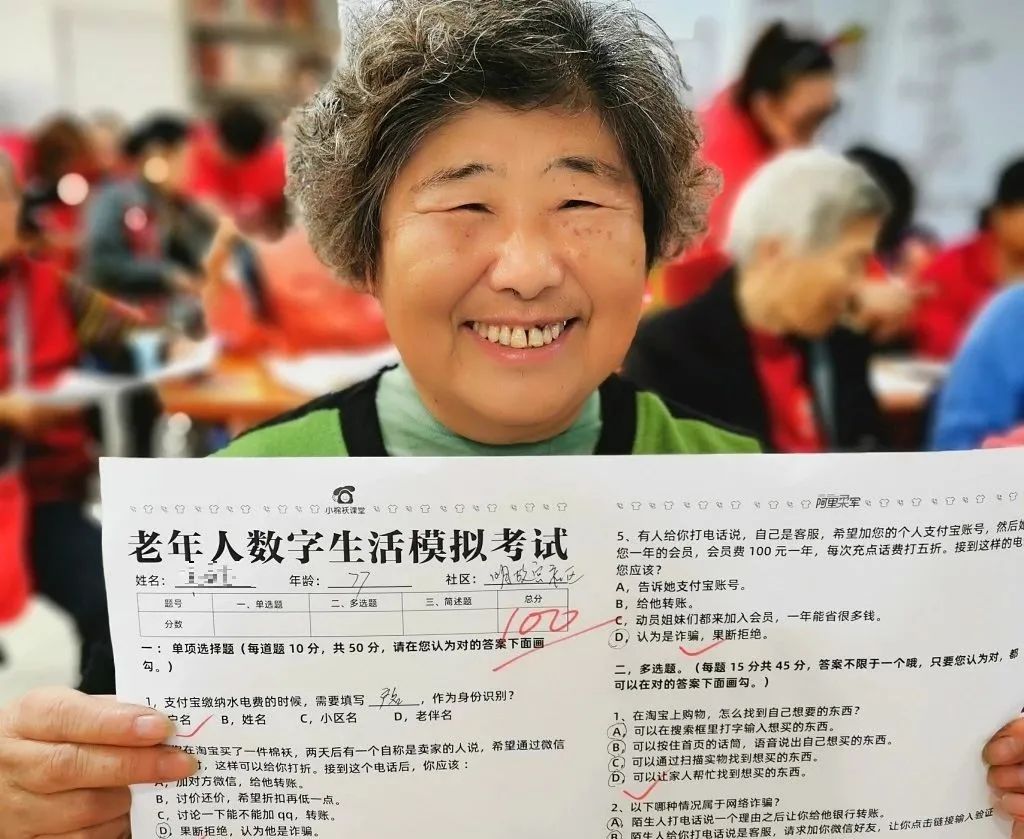 小棉袄课堂
老年人数字生活模拟考试
姓名： 年龄：77 社区：
题号 一、单选题 二、多选题 三、简述题 总分
分数 100
一：单项选择题（每道题 10 分，共 50 分，请在您认为对的答案下面画
勾。）
1，支付宝缴纳水电费的时候，需要填写，作为身份识别？
户名 B，姓名 C，小区名 D，老伴名
在淘宝买了一件棉袄，两天后有一个自称是卖家的人说，希望通过微信
，这样可以给你打折。接到这个电话后，你应该：
A，加对方微信，给他转账。
B，讨价还价，希望折扣再低一点。
C，讨论一下能不能加 qq，转账。
D，果断拒绝，认为他是诈骗。
阿里
5，有人给你打电话说，自己是客服，希望加您的个人支付宝账号，然后
您一年的会员，会员费 100 元一年，每次充点话费打五折。接到这样的电
您应该？
A，告诉她支付宝账号。
B，给他转账。
C，动员姐妹们都来加入会员，一年能省很多钱。
D，认为是诈骗，果断拒绝。
二，多选题。（每题 15 分共 45 分，答案不限于一个哦，只要您认为对，都
可以在对的答案下面画勾。）
1，在淘宝上购物，怎么找到自己想要的东西？
A，可以在搜索框里打字输入想买的东西。
B，可以按住首页的话筒，语音说出自己想买的东西。
C，可以通过扫描实物找到想买的东西。
D，可以让家人帮忙找到想买的东西。
2，以下哪种情况属于网络诈骗？
A，陌生人打电话说一个理由之后让你给他银行转账。
B，陌生人给你打电话说是客服，请求加你微信好友，让你点击链接输入验证